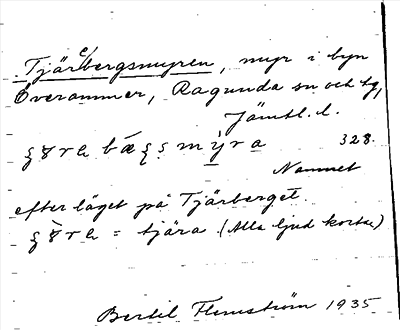 Tjärebergsmyren, myr i byn
Överammer, Ragunda sn och tg,
Jämtl. l.
328.
Namnet
efter läget på Tjärberget.
= tjära (Alla ljud korta)
Bertil Flemström 1935